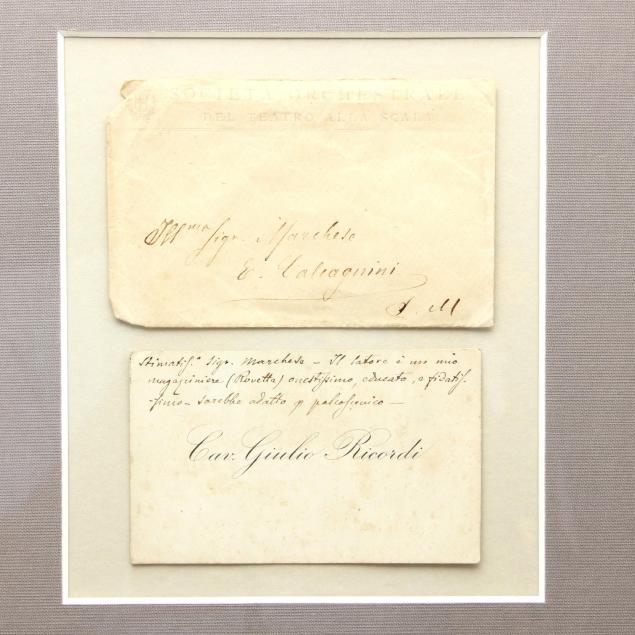 SOCIETÀ ORCHESTRALE
DEL TEATRO ALLA SCALA
Ill.mo Sigr. Marchese
C. Calcagnini
S. M
Stimatiss.o Sigr. Marchese – Il latore è un mio
magazziniere (Rovetta) onestissimo, educato, e fidatis-
simo – sarebbe adatto p palcoscenico –
Cav. Giulio Ricordi